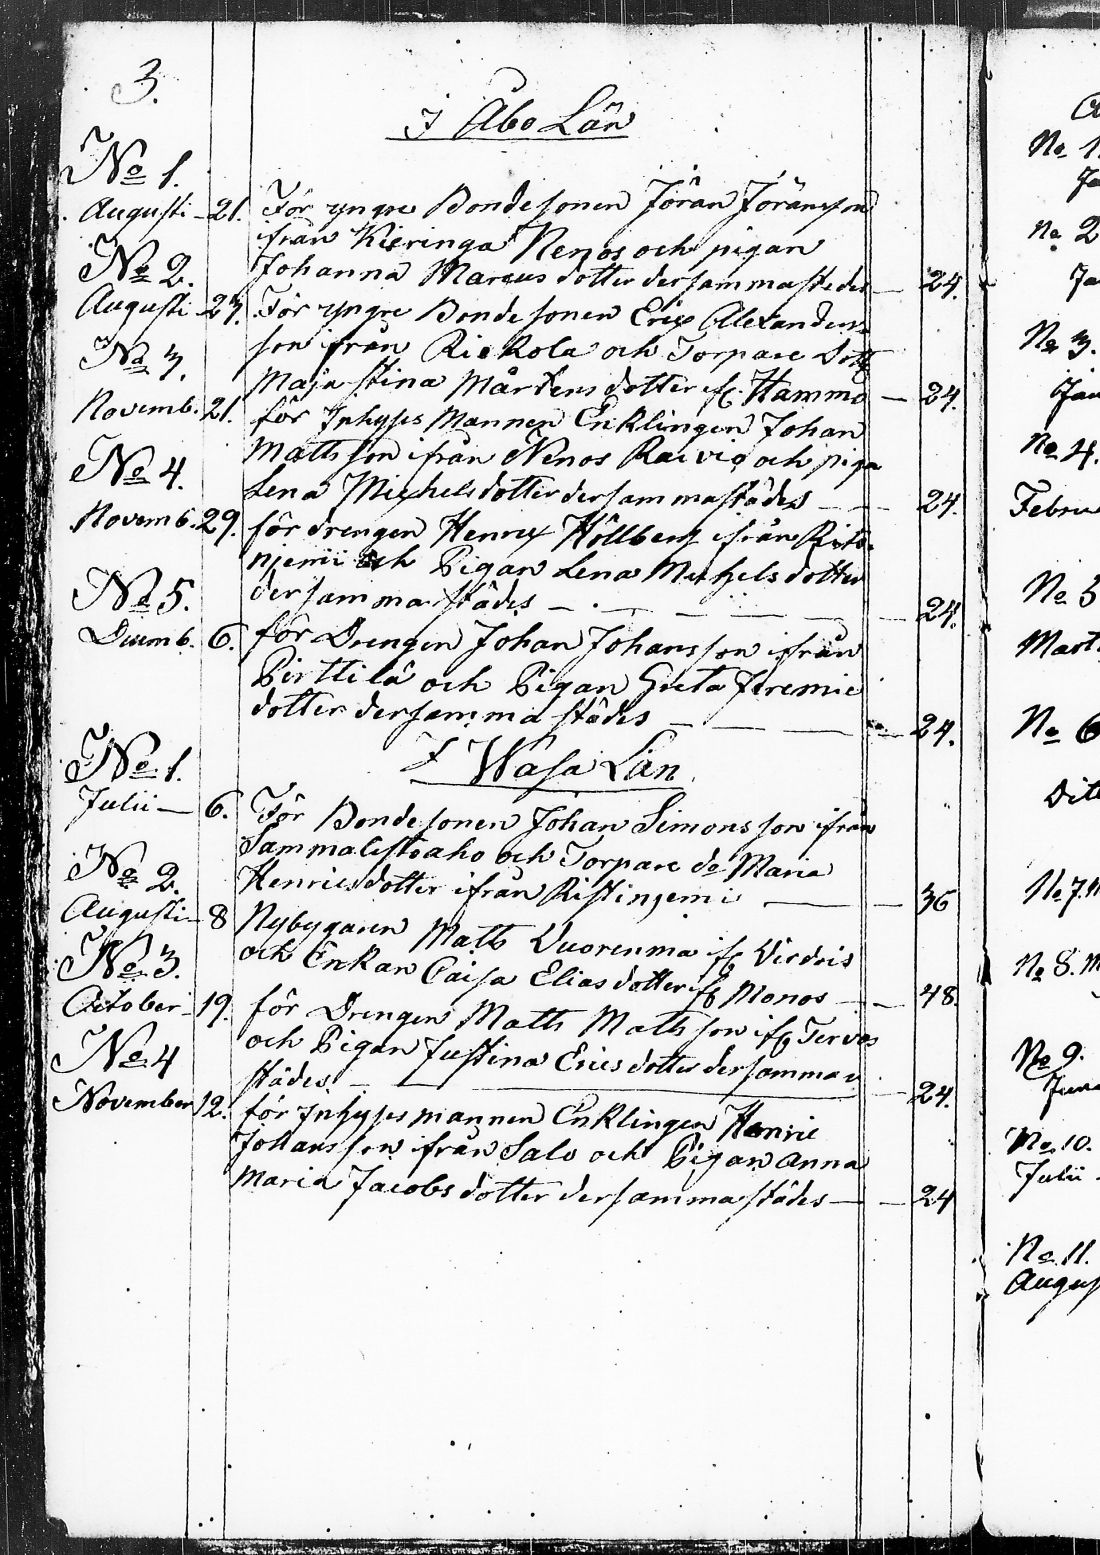 3.
I Åbo Län
No 1.
Augusti 21. För yngre Bondesonen Jöran Jöransson
ifrån Kieringa Nenos och pigan
No 2.
Johanna Marcus dotter dersammastedes — 24.
Augusti 27. För yngre Bondesonen Eric Alexanders
son ifrån Riekola och Torpare Dott
No 3.
Maja Stina Mårtens dotter if. Hammo — 24.
Novemb. 21. för Inhyses Mannen Enklingen Johan
Matts son ifrån Nenos Raivio och piga
No 4.
Lena Michelsdotter dersammastädes — 24.
Novemb. 29. för drengen Henric Höllberg ifrån Rito
njemi och Pigan Lena Michels dotter
No 5.
dersammastädes — 24.
Decemb. 6. för Drengen Johan Johansson ifrån
Pirttilä och Pigan Greta Jeremie
dotter dersamma städes — 24.
I Wasa Län
No 1.
Julii — 6. För Bondesonen Johan Simonsson ifrån
Sammalistoaho och Torpare do Maria
No 2.
Henricsdotter ifrån Ristinjemi — 36
Augusti 8 Nybygaren Matts Vuorenma if.
No 3.
och Enkan Caisa Elias dotter if. Monos — 48.
October 19. för Drengen Matts Mattsson if. Tervos
och Pigan Justina Erics dotter dersamma
No 4
städes. — 24.
November 12. för Inhyses mannen Enklingen Henric
Johansson ifrån Salo och Pigan Anna
Maria Jacobs dotter dersammastädes — 24
No 1.
No 2
No 3.
No 4.
No 5
No 6
No 7.
No 8.
No 9.
No 10.
Julii
No 11.